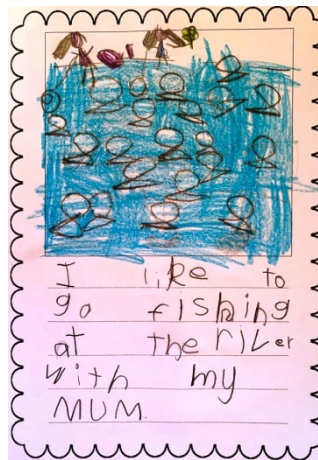 I like to
go fishing
at the river
with my
MUM.